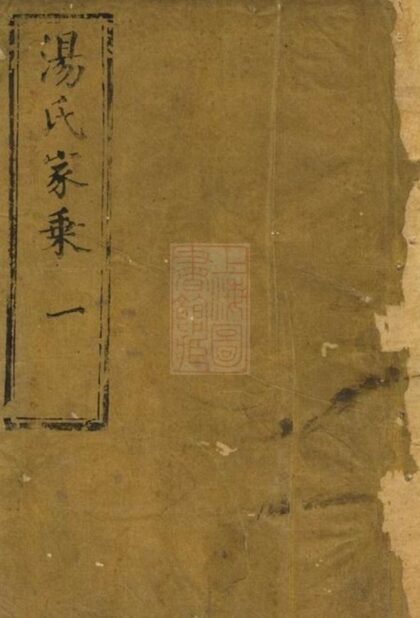 湯氏家乘 一
上海圖
書館藏